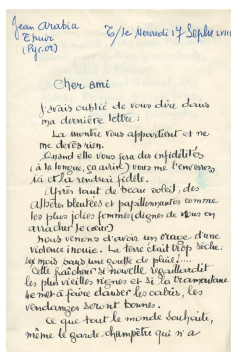 Jean Arabia
Thuir
(Pyr. or)
T/le Mercredi 17 Septbre LVIII
Cher ami
J'avais oublié de vous dire dans
ma dernière lettre :
La montre vous appartient et ne
me devez rien.
Quand elle vous fera des infidélités
(à la longue, ça arrive) vous me l'enverrez
ici et la rendrai fidèle.
Après tant de beau soleil, des
Albères bleutées et papillonnantes comme
les plus jolies femmes (dignes de vous en
arracher le cœur)
nous venons d'avoir un orage d'une
violence inouïe. La terre était trop sèche.
six mois sans une goutte de pluie !....
Cette fraîcheur si nouvelle regaillardit
les plus vieilles vignes et si la tramontane
se met à faire danser les cabris, les
vendanges seront bonnes.
Ce que tout le monde souhaite,
même le garde-champêtre qui n'a